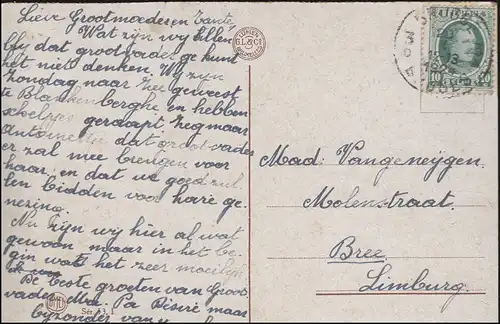 Lieve Grootmoeder en Tante,
Wat zijn wij hillen
ffy dat grootvader ge kunt
het niet denken. Wij zijn
Zondag naar Zee geweest
te Blankenberghe en hebben
schelpjes geraapt zeg maar
Antoinette dat grootvader
er zal mee brengen voor
haar, en dat we goed zul
len bidden voor hare ge
nezing.
Nu zijn wij hier al wat
gewoon maar in het be
gin wat het zeer moeilijk
De beste groeten van Groot
vader, Ma, Pa Désiré maar
byzonder van
Sér. 53. 1
G.L.&Co
10 10
Mad: Vangeneygen.
Molenstraat.
Bree
Limburg.